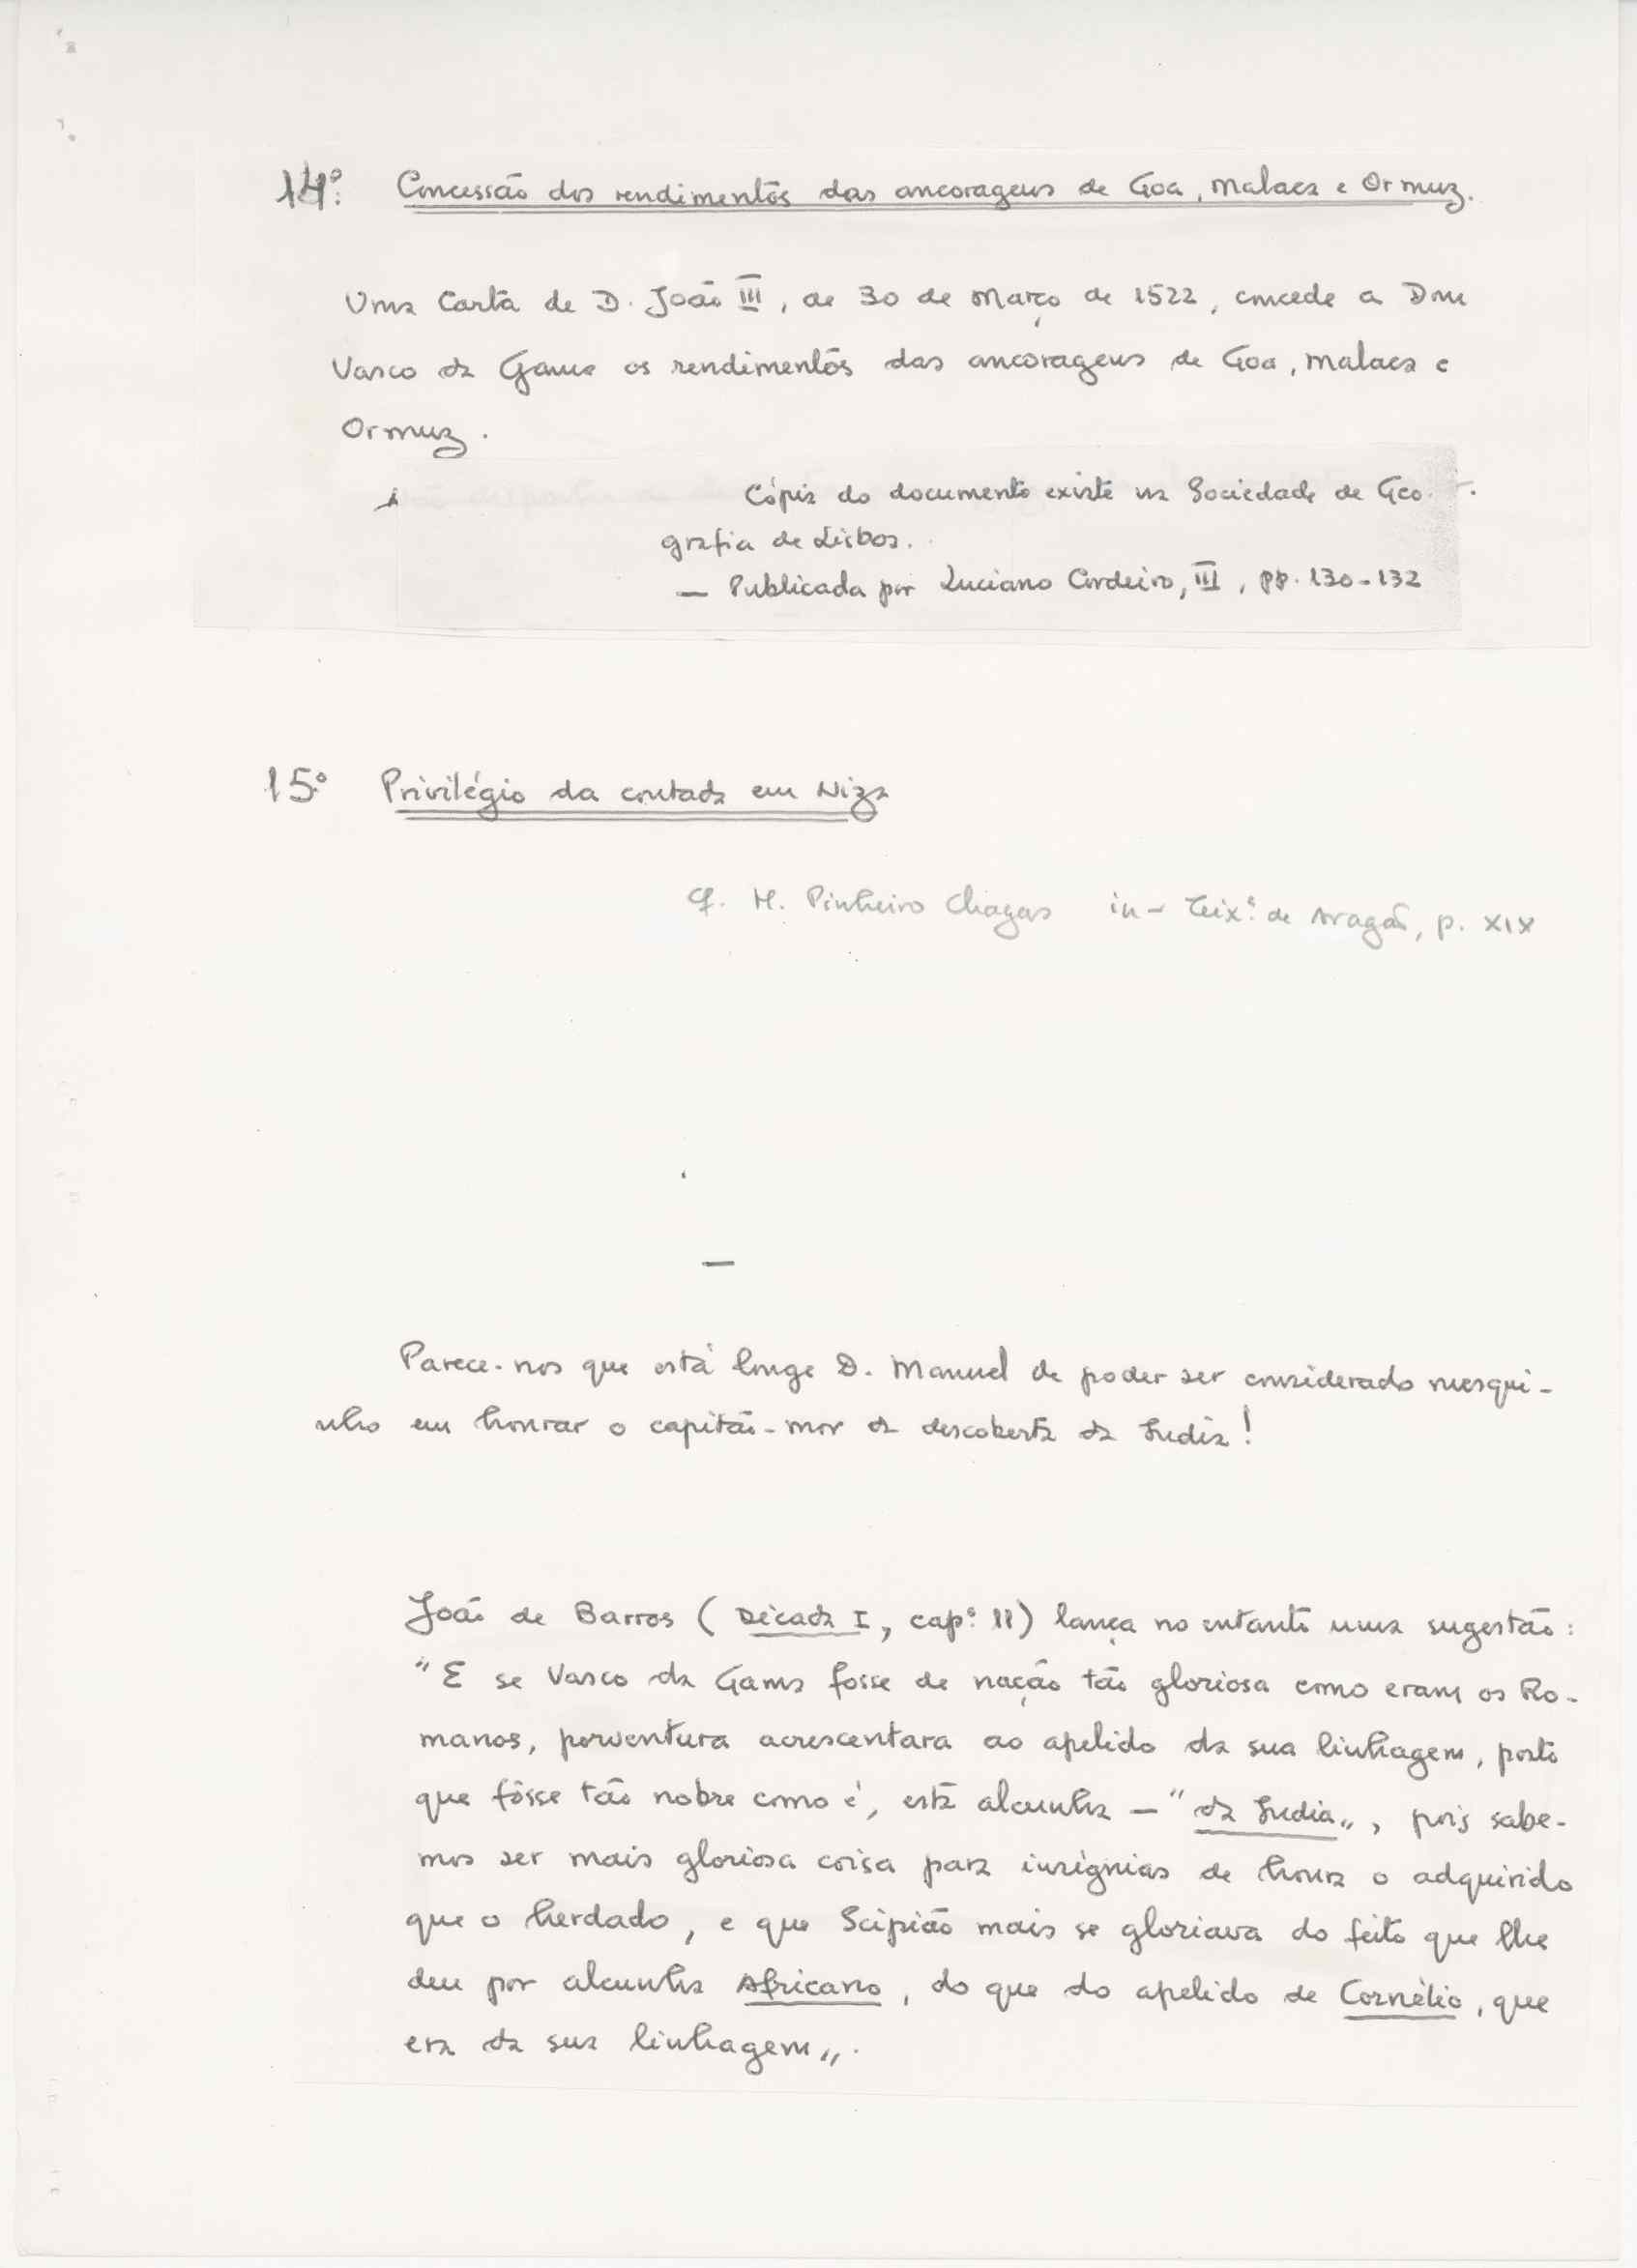 14º: Concessão dos rendimentos das ancoragens de Goa, Malaca e Ormuz.
Uma Carta de D. João III, de 30 de Março de 1522, concede a Dom
Vasco da Gama os rendimentos das ancoragens de Goa, Malaca e
Ormuz.
Cópia do documento existe na Sociedade de Geo-
grafia de Lisboa.
— Publicada por Luciano Cordeiro, III, pp. 130-132
15º Privilégio da coutada em Niza
Cf. M. Pinheiro Chagas in- Teixª de Aragão, p. XIX
—
Parece-nos que está longe D. Manuel de poder ser considerado mesqui-
nho em honrar o capitão-mor da descoberta da India!
João de Barros (Década I, capº 11) lança no entanto uma sugestão:
"E se Vasco da Gama fosse de nação tão gloriosa como eram os Ro-
manos, porventura acrescentara ao apelido da sua linhagem, posto
que fôsse tão nobre como é, esta alcunha — "da India", pois sabe-
mos ser mais gloriosa coisa para insígnias de honra o adquirido
que o herdado, e que Scipião mais se gloriava do feito que lhe
deu por alcunha Africano, do que do apelido de Cornélio, que
era da sua linhagem".